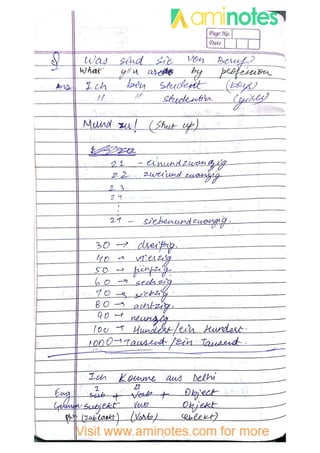 aminotes
Page No.
Date
Q Was sind sie von Beruf?
What you are by profession
Ans Ich bin student (boys)
" " studentin (girls)
Mund zu! (Shut up)
21 - einundzwanzig
22 zweiundzwanzig
23
24
27 - siebenundzwanzig.
30 → dreißig.
40 → vierzig
50 → fünfzig.
60 → sechzig
70 → siebzig.
80 → achtzig.
90 → neunzig
100 → Hundert/ein Hundert.
1000 → Tausend/Ein Tausend.
Ich Komme aus Delhi
Eng sub + Verb + Object
German Subjekt Vub Objekt
(Verb) Objekt)
Visit www.aminotes.com for more